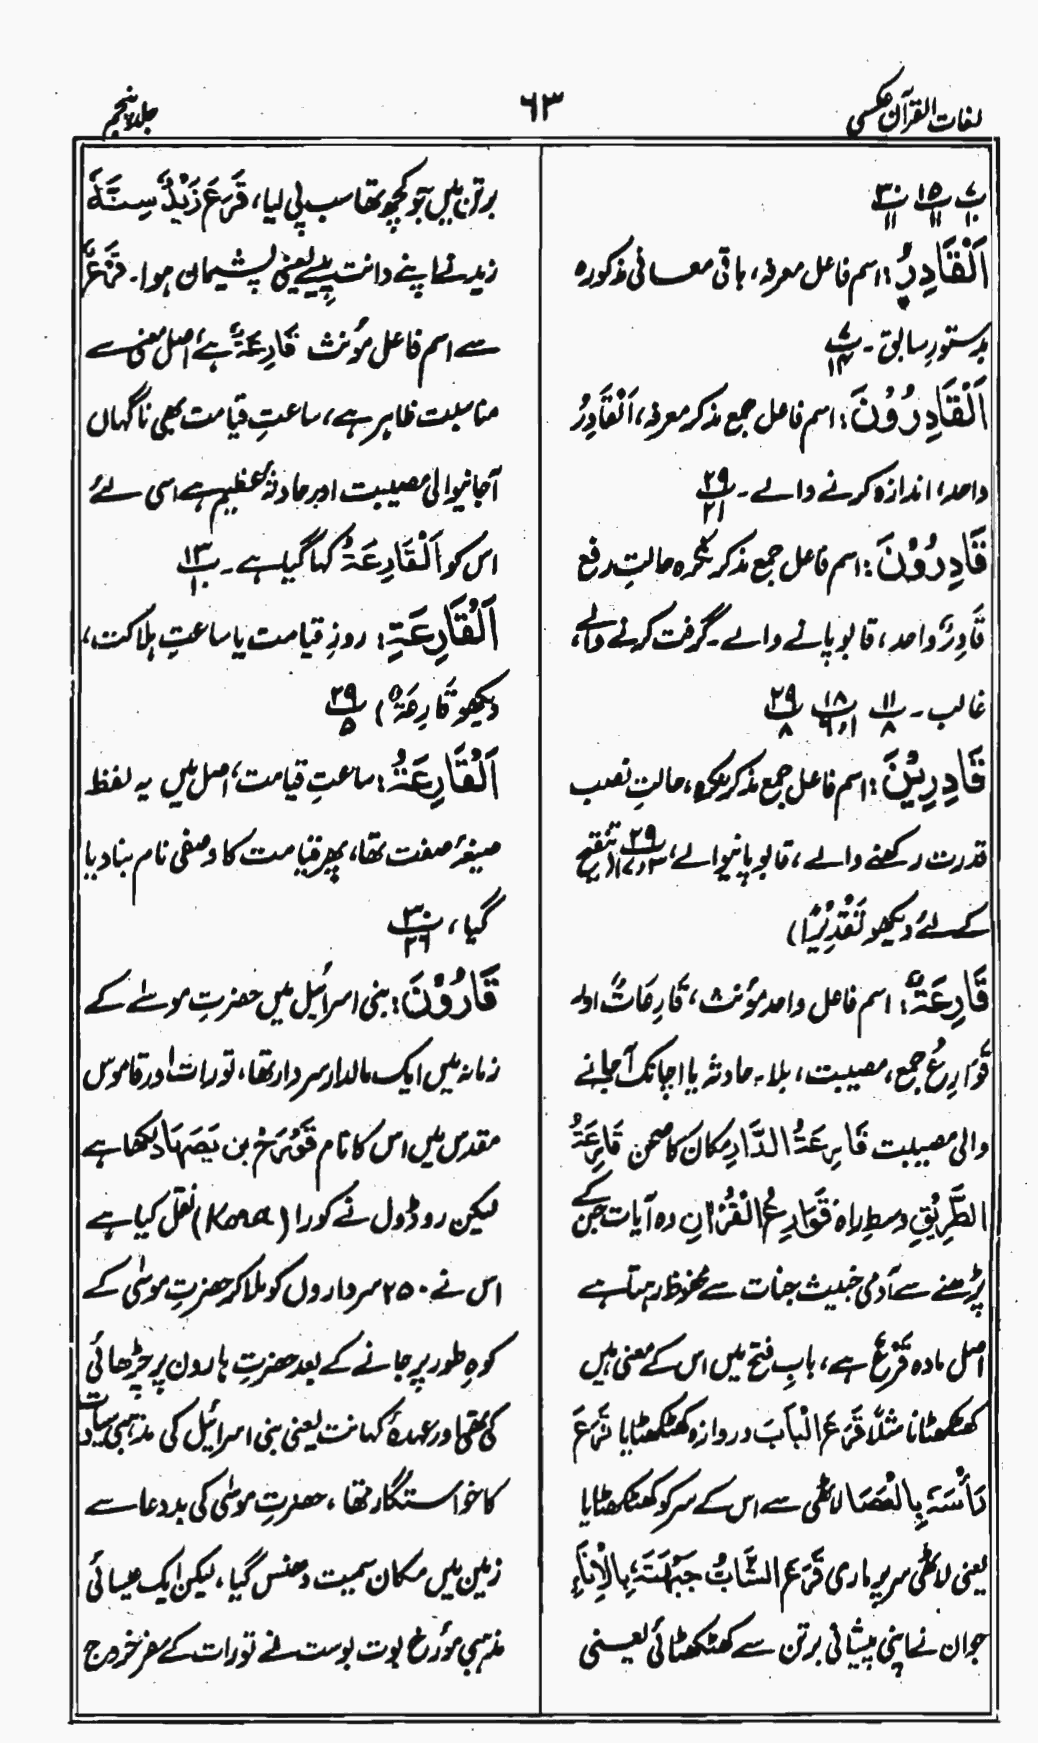 لغات القرآن عکسی
۶۳
جلد پنجم
پ۷/۱۰ پ۱۵/۱۱ پ۳۰/۱۱
اَلْقَادِرُ: اسم فاعل معرفہ، باقی معانی مذکورہ
بدستورِ سابق۔ پ۷/۱۴
اَلْقَادِرُوْنَ: اسم فاعل جمع مذکر معرفہ، اَلْقَادِرُ
واحد، اندازہ کرنے والے۔ پ۲۹/۲۱
قَادِرُوْنَ: اسم فاعل جمع مذکر نکرہ حالتِ رفع
قَادِرٌ واحد، قابو پانے والے۔ گرفت کرنے والے،
غالب۔ پ۱۱/۸ پ۱۸/۱و۶ پ۲۹/۸
قَادِرِیْنَ: اسم فاعل جمع مذکر نکرہ، حالتِ نصب
قدرت رکھنے والے، قابو پانیوالے، پ۲۹ (تنقیح
کے لئے دیکھو نَقْدِرُ)
قَارِعَةٌ: اسم فاعل واحد مؤنث، قَارِعَاتٌ اور
قَوَارِعُ جمع، مصیبت، بلا، حادثہ یا اچانک آجانے
والی مصیبت قَارِعَةُ الدَّارِ مکان کا صحن قَارِعَةُ
الطَّرِیْقِ وسطِ راہ قَوَارِعُ الْقُرْاٰنِ وہ آیات جن کے
پڑھنے سے آدمی خبیث جنات سے محفوظ رہتا ہے
اصل مادہ قَرْعٌ ہے، بابِ فتح میں اس کے معنی ہیں
کھٹکھٹانا مثلًا قَرَعَ الْبَابَ دروازہ کھٹکھٹایا قَرَعَ
رَأْسَهٗ بِالْعَصَا لاٹھی سے اس کے سر کو کھٹکھٹایا
یعنی لاٹھی سر پر ماری قَرَعَ الشَّابُّ جَبْهَتَهٗ بِالْاِنَاءِ
جوان نے اپنی پیشانی برتن سے کھٹکھٹائی یعنی
برتن میں جو کچھ تھا سب پی لیا، قَرَعَ زَیْدٌ سِنَّهٗ
زید نے اپنے دانت پیسے یعنی پشیمان ہوا۔ قَرْعٌ
سے اسم فاعل مؤنث قَارِعَةٌ ہے، اصل معنی سے
مناسبت ظاہر ہے، ساعتِ قیامت بھی ناگہاں
آجانیوالی مصیبت اور حادثۂ عظیم ہے اسی لئے
اس کو اَلْقَارِعَةُ کہا گیا ہے۔ پ۱۳/۱۰
اَلْقَارِعَةِ: روزِ قیامت یا ساعتِ ہلاکت،
دیکھو قَارِعَةٌ) پ۲۹/۵
اَلْقَارِعَةُ: ساعتِ قیامت، اصل میں یہ لفظ
صیغۂ صفت تھا، پھر قیامت کا وصفی نام بنا دیا
گیا، پ۳۰/۲۶
قَارُوْنَ: بنی اسرائیل میں حضرتِ موسٰے کے
زمانہ میں ایک مالدار سردار تھا، تورات اور قاموس
مقدس میں اس کا نام قورح بن یصہار لکھا ہے
لیکن روڈول نے کورا (Kora) نقل کیا ہے
اس نے ۲۵۰ سرداروں کو ملا کر حضرتِ موسیٰ کے
کوہِ طور پر جانے کے بعد حضرتِ ہارون پر چڑھائی
کی تھی اور عہدۂ کہانت یعنی بنی اسرائیل کی مذہبی سیادت
کا خواستگار تھا، حضرتِ موسیٰ کی بددعا سے
زمین میں مکان سمیت دھنس گیا، لیکن ایک عیسائی
مذہبی مؤرخ بوت بوست نے تورات کے سفر خروج